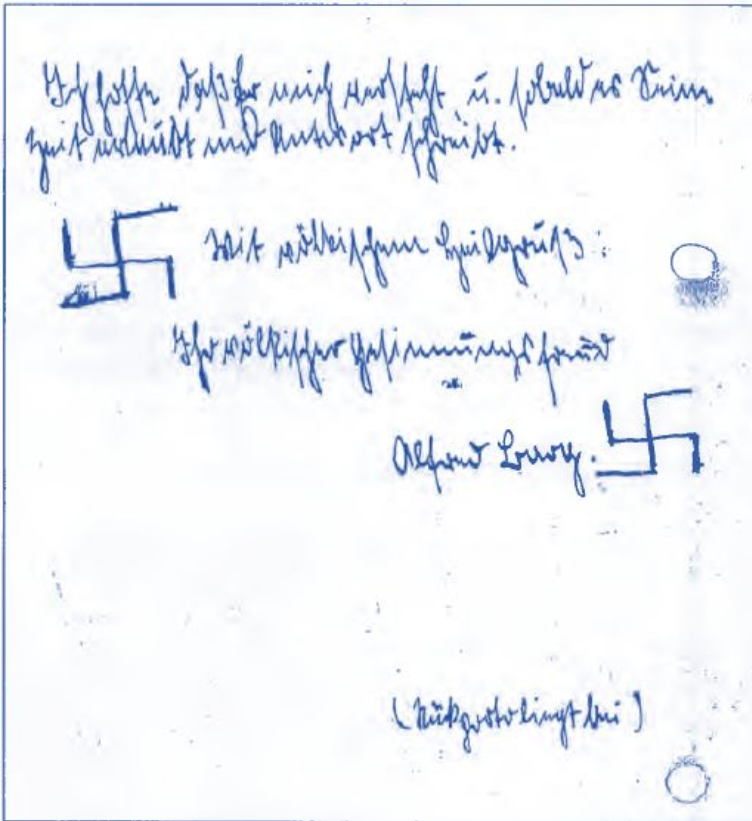 Ich hoffe daß Er mich versteht u. sobald es Seine
Zeit erlaubt und Antwort schreibt.
Mit völkischem Heilgruß:
Ihr völkischer Gesinnungsfreund
Alfred
(Rükporto liegt bei)